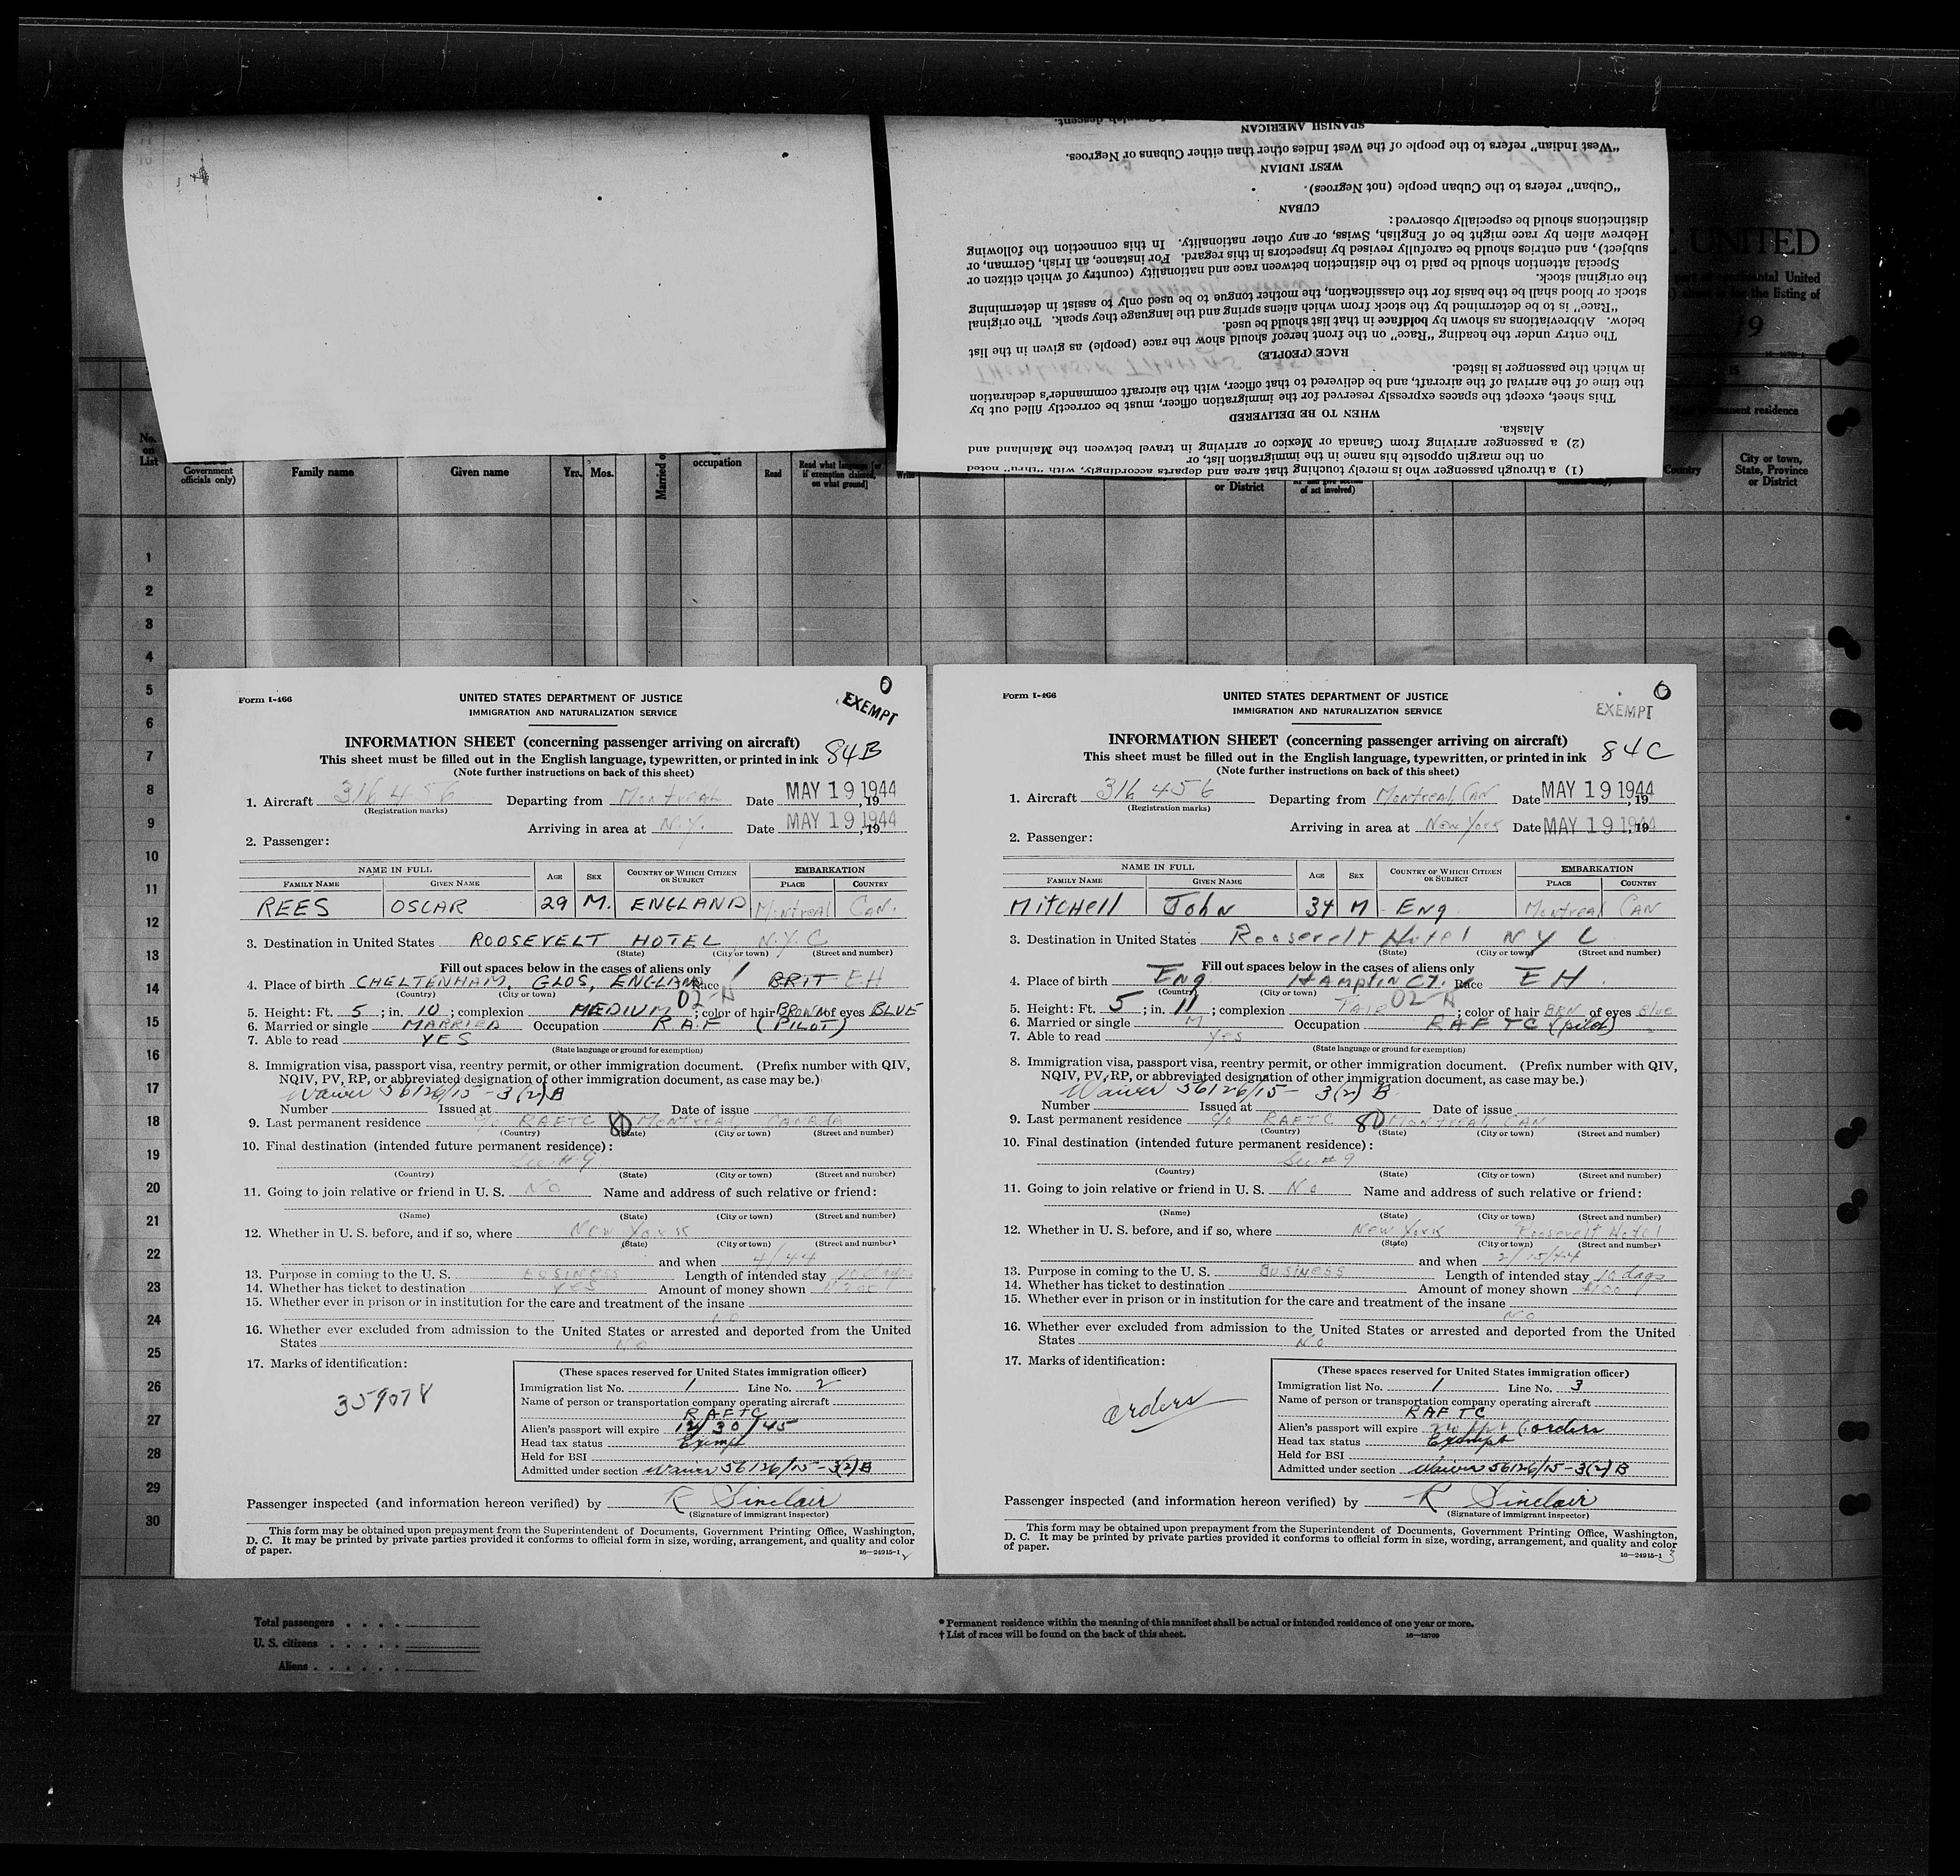 SPANISH AMERICAN
"West Indian" refers to the people of the West Indies other than either Cubans or Negroes.
WEST INDIAN
"Cuban" refers to the Cuban people (not Negroes).
CUBAN
distinctions should be especially observed:
Hebrew alien by race might be of English, Swiss, or any other nationality. In this connection the following
subject), and entries should be carefully revised by inspectors in this regard. For instance, an Irish, German, or
Special attention should be paid to the distinction between race and nationality (country of which citizen or
the original stock.
stock or blood shall be the basis for the classification, the mother tongue to be used only to assist in determining
"Race" is to be determined by the stock from which aliens spring and the language they speak. The original
below. Abbreviations as shown by boldface in that list should be used.
The entry under the heading "Race" on the front hereof should show the race (people) as given in the list
RACE (PEOPLE)
in which the passenger is listed.
the time of the arrival of the aircraft, and be delivered to that officer, with the aircraft commander's declaration
This sheet, except the spaces expressly reserved for the immigration officer, must be correctly filled out by
WHEN TO BE DELIVERED
Alaska.
(2) a passenger arriving from Canada or Mexico or arriving in travel between the Mainland and
on the margin opposite his name in the immigration list, or
(1) a through passenger who is merely touching that area and departs accordingly, with "thru" noted
E UNITED
continental United
for the listing of
19
15
permanent residence
No. on List
Government officials only)
Family name
Given name
Yrs. Mos.
Married or
occupation
Read
Read what language [or if exemption claimed, on what ground]
Write
or District
of act involved)
Country
City or town, State, Province or District
1
2
3
4
5
6
7
8
9
10
11
12
13
14
15
16
17
18
19
20
21
22
23
24
25
26
27
28
29
30
Form I-466
UNITED STATES DEPARTMENT OF JUSTICE
IMMIGRATION AND NATURALIZATION SERVICE
0
EXEMPT
INFORMATION SHEET (concerning passenger arriving on aircraft)
84B
This sheet must be filled out in the English language, typewritten, or printed in ink
(Note further instructions on back of this sheet)
1. Aircraft 316456 Departing from Montreal Date MAY 19 1944, 19
(Registration marks)
Arriving in area at N.Y. Date MAY 19 1944, 19
2. Passenger:
NAME IN FULL AGE SEX COUNTRY OF WHICH CITIZEN OR SUBJECT EMBARKATION
FAMILY NAME GIVEN NAME PLACE COUNTRY
REES OSCAR 29 M. ENGLAND Montreal CAN.
3. Destination in United States ROOSEVELT HOTEL N.Y.C
(State) (City or town) (Street and number)
Fill out spaces below in the cases of aliens only
4. Place of birth CHELTENHAM, GLOS, ENGLAND Race BRIT EH
(Country) (City or town)
5. Height: Ft. 5; in. 10; complexion MEDIUM; color of hair BROWN of eyes BLUE
6. Married or single MARRIED Occupation R.A.F (PILOT)
7. Able to read YES
(State language or ground for exemption)
8. Immigration visa, passport visa, reentry permit, or other immigration document. (Prefix number with QIV,
NQIV, PV, RP, or abbreviated designation of other immigration document, as case may be.)
Waiver 56126/15-3(2)B
Number Issued at Date of issue
9. Last permanent residence c/o RAFTC 80 MONTREAL, CANADA
(Country) (State) (City or town) (Street and number)
10. Final destination (intended future permanent residence):
See #9
(Country) (State) (City or town) (Street and number)
11. Going to join relative or friend in U. S. NO Name and address of such relative or friend:
(Name) (State) (City or town) (Street and number)
12. Whether in U. S. before, and if so, where New York
(State) (City or town) (Street and number)
and when 4/44
13. Purpose in coming to the U. S. BUSINESS Length of intended stay 10 days
14. Whether has ticket to destination YES Amount of money shown
15. Whether ever in prison or in institution for the care and treatment of the insane
NO
16. Whether ever excluded from admission to the United States or arrested and deported from the United
States NO
17. Marks of identification:
359078
(These spaces reserved for United States immigration officer)
Immigration list No. 1 Line No. 2
Name of person or transportation company operating aircraft
RAFTC
Alien's passport will expire 12/30/45
Head tax status Exempt
Held for BSI
Admitted under section Waiver 56126/15-3(2)B
Passenger inspected (and information hereon verified) by R Sinclair
(Signature of immigrant inspector)
This form may be obtained upon prepayment from the Superintendent of Documents, Government Printing Office, Washington,
D. C. It may be printed by private parties provided it conforms to official form in size, wording, arrangement, and quality and color
of paper.
16—24915-1
2
Form I-466
UNITED STATES DEPARTMENT OF JUSTICE
IMMIGRATION AND NATURALIZATION SERVICE
0
EXEMPT
INFORMATION SHEET (concerning passenger arriving on aircraft)
84C
This sheet must be filled out in the English language, typewritten, or printed in ink
(Note further instructions on back of this sheet)
1. Aircraft 316456 Departing from Montreal, CAN Date MAY 19 1944, 19
(Registration marks)
Arriving in area at New York Date MAY 19 1944, 19
2. Passenger:
NAME IN FULL AGE SEX COUNTRY OF WHICH CITIZEN OR SUBJECT EMBARKATION
FAMILY NAME GIVEN NAME PLACE COUNTRY
MitCHell John 34 M Eng Montreal CAN
3. Destination in United States Roosevelt Hotel N Y C
(State) (City or town) (Street and number)
Fill out spaces below in the cases of aliens only
4. Place of birth Eng HAmptin CT. Race EH
(Country) (City or town)
5. Height: Ft. 5; in. 11; complexion Fair; color of hair BRN of eyes Blue
6. Married or single M Occupation RAFTC (pilot)
7. Able to read yes
(State language or ground for exemption)
8. Immigration visa, passport visa, reentry permit, or other immigration document. (Prefix number with QIV,
NQIV, PV, RP, or abbreviated designation of other immigration document, as case may be.)
Waiver 56126/15- 3(2) B
Number Issued at Date of issue
9. Last permanent residence c/o RAFTC 80 Montreal, CAN
(Country) (State) (City or town) (Street and number)
10. Final destination (intended future permanent residence):
See #9
(Country) (State) (City or town) (Street and number)
11. Going to join relative or friend in U. S. No Name and address of such relative or friend:
(Name) (State) (City or town) (Street and number)
12. Whether in U. S. before, and if so, where New York Roosevelt Hotel
(State) (City or town) (Street and number)
and when 2/15/44
13. Purpose in coming to the U. S. BUSINESS Length of intended stay 10 days
14. Whether has ticket to destination Amount of money shown $100
15. Whether ever in prison or in institution for the care and treatment of the insane
NO
16. Whether ever excluded from admission to the United States or arrested and deported from the United
States NO
17. Marks of identification:
orders
(These spaces reserved for United States immigration officer)
Immigration list No. 1 Line No. 3
Name of person or transportation company operating aircraft
RAFTC
Alien's passport will expire no ppt (orders
Head tax status Exempt
Held for BSI
Admitted under section Waiver 56126/15-3(2) B
Passenger inspected (and information hereon verified) by R Sinclair
(Signature of immigrant inspector)
This form may be obtained upon prepayment from the Superintendent of Documents, Government Printing Office, Washington,
D. C. It may be printed by private parties provided it conforms to official form in size, wording, arrangement, and quality and color
of paper.
16—24915-1
3
Total passengers . . . .
U. S. citizens . . . . .
Aliens . . . . . .
* Permanent residence within the meaning of this manifest shall be actual or intended residence of one year or more.
† List of races will be found on the back of this sheet.
16—18709